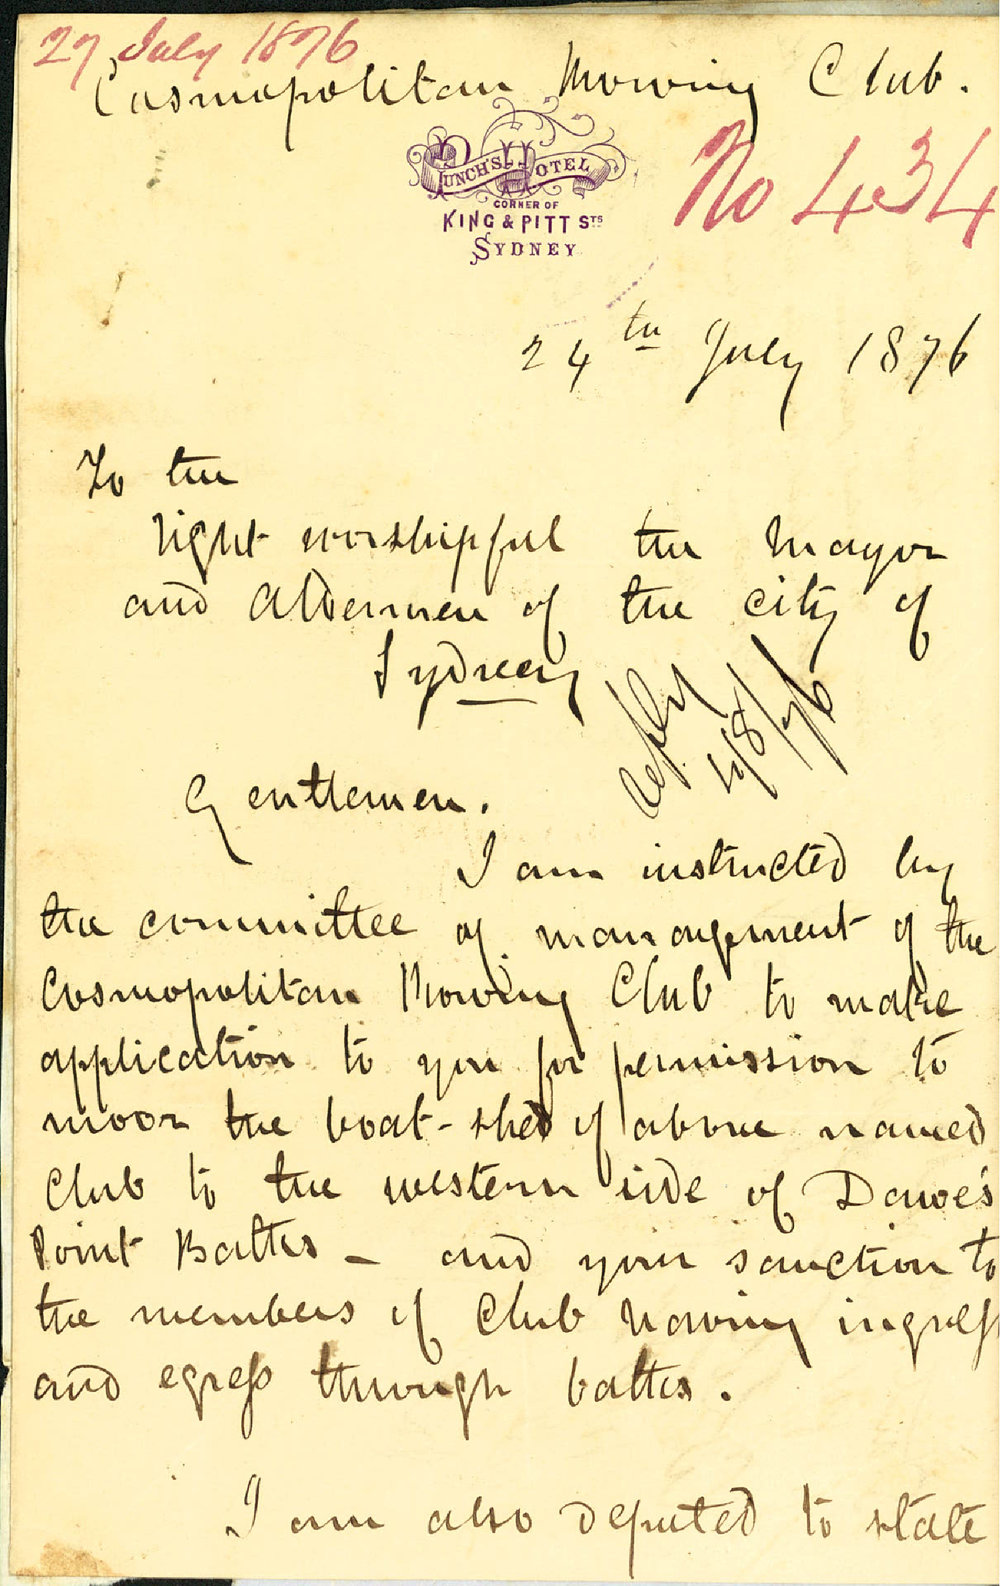 27 July 1876
Cosmopolitan Rowing Club.
PUNCH'S HOTEL
CORNER OF
KING & PITT STS
SYDNEY
No 434
24th July 1876
To the
right worshipful the Mayor
and Aldermen of the city of
Sydney
reply
4/8/76
Gentlemen.
I am instructed by
the committee of management of the
Cosmopolitan Rowing Club to make
application to you for permission to
moor the boat-shed of above named
Club to the western side of Dawe's
Point Baths - and your sanction to
the members of Club having ingress
and egress through baths.
I am also deputed to state